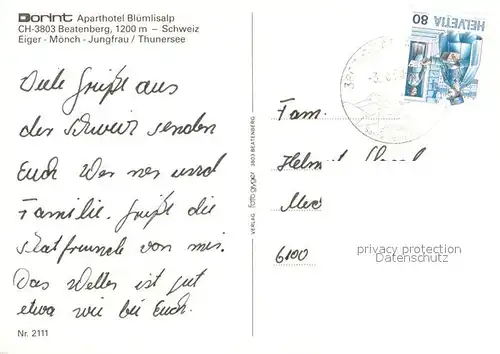 Dorint Aparthotel Blümlisalp
CH-3803 Beatenberg, 1200 m – Schweiz
Eiger - Mönch - Jungfrau / Thunersee
Viele Grüße aus
der Schweiz senden
Euch Werner und
Familie. Grüßt die
Skatfreunde von mir.
Das Wetter ist gut
etwa wie bei Euch.
Nr. 2111
VERLAG foto gyger 3803 BEATENBERG
HELVETIA 80
Fam.
Helmut
6100
privacy protection
Datenschutz